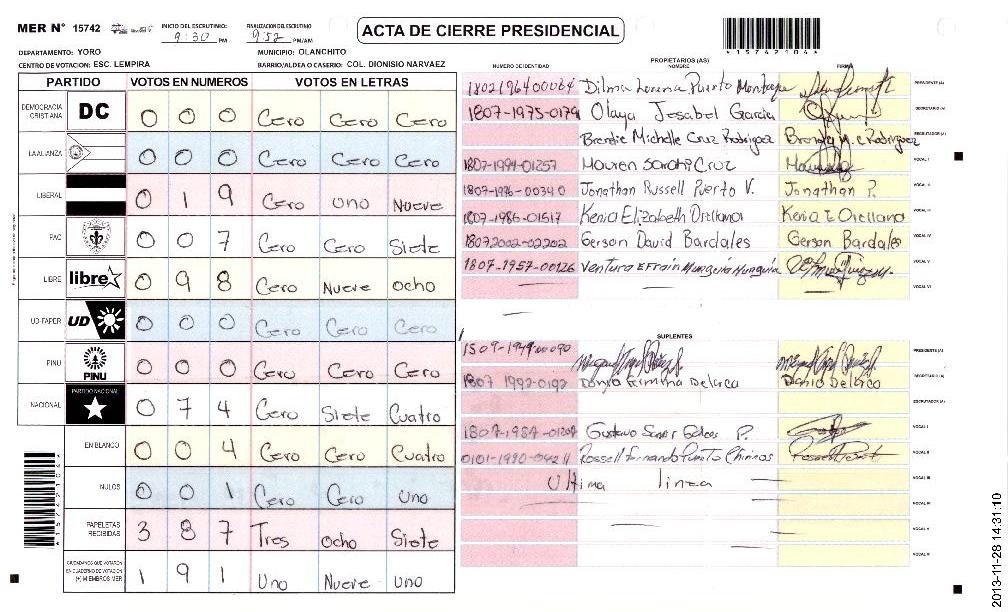 MER N° 15742
INICIO DEL ESCRUTINIO 9:30 PM
FINALIZACION DEL ESCRUTINIO 9:52 PM/AM
ACTA DE CIERRE PRESIDENCIAL
*15742104*
DEPARTAMENTO: YORO
MUNICIPIO: OLANCHITO
CENTRO DE VOTACION: ESC. LEMPIRA
BARRIO/ALDEA O CASERIO: COL. DIONISIO NARVAEZ
PARTIDO VOTOS EN NUMEROS VOTOS EN LETRAS
DEMOCRACIA CRISTIANA DC 0 0 0 Cero Cero Cero
LA ALIANZA 0 0 0 Cero Cero Cero
LIBERAL 0 1 9 Cero uno Nueve
PAC 0 0 7 Cero Cero Siete
LIBRE libre 0 9 8 Cero Nueve ocho
UD-FAPER UD 0 0 0 Cero Cero Cero
PINU PINU 0 0 0 Cero Cero Cero
NACIONAL PARTIDO NACIONAL 0 7 4 Cero Siete Cuatro
EN BLANCO 0 0 4 Cero Cero Cuatro
NULOS 0 0 1 Cero Cero uno
PAPELETAS RECIBIDAS 3 8 7 Tres ocho Siete
CIUDADANOS QUE VOTARON EN CUADERNO DE VOTACION (+) MIEMBROS MER 1 9 1 Uno Nueve uno
PROPIETARIOS (AS)
NUMERO DE IDENTIDAD NOMBRE FIRMA
Dilma Lorena Puerto PRESIDENTE (A)
1807-1975-0179 Olaya Jesabel Garcia SECRETARIO (A)
Brenda Michelle Cruz Rodriguez Brenda M. c Rodriguez ESCRUTADOR (A)
1807-1994-01257 Mauren Sarahi Cruz VOCAL I
1807-1996-00340 Jonathan Russell Puerto V. Jonathan P. VOCAL II
1807-1986-01517 Kenia Elizabeth Orellana Kenia E Orellana VOCAL III
1807 2002-02202 Gerson David Bardales Gerson Bardales VOCAL IV
1807-1957-00126 Ventura Efrain Munguia Munguia VOCAL V
VOCAL VI
SUPLENTES
1509-1949-00090 PRESIDENTE (A)
1807 1992-0192 SECRETARIO (A)
ESCRUTADOR (A)
Gustavo P. VOCAL I
Rossell Fernando Puerto Chirinos VOCAL II
Ultima linea VOCAL III
VOCAL IV
VOCAL V
VOCAL VI
2013-11-28 14:31:10